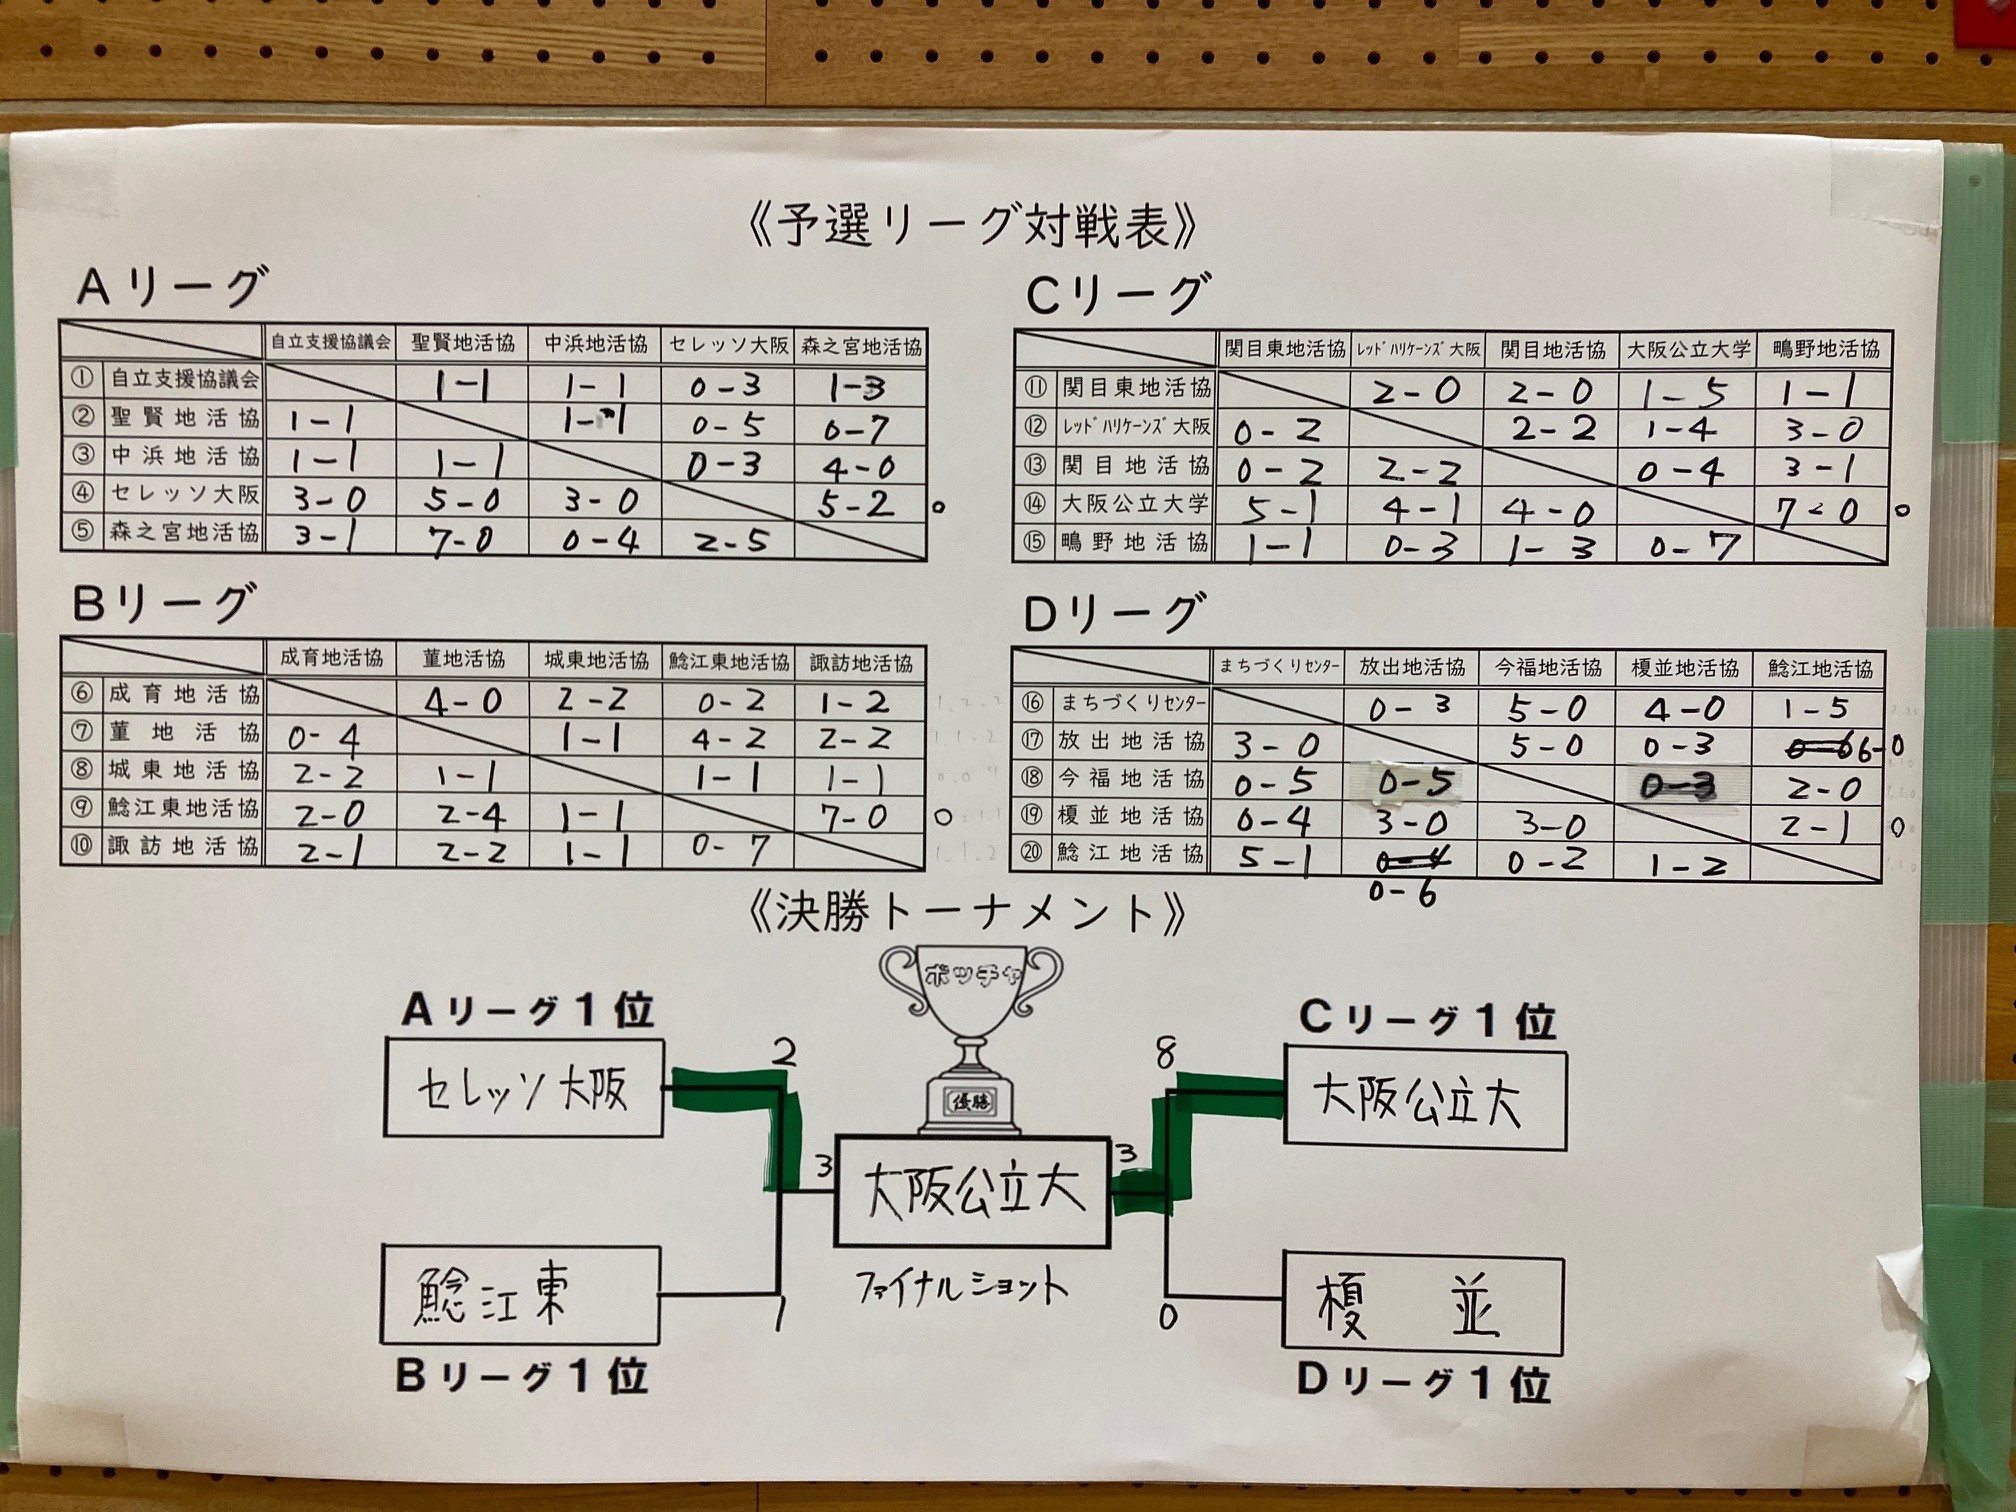 《予選リーグ対戦表》
Aリーグ
自立支援協議会 聖賢地活協 中浜地活協 セレッソ大阪 森之宮地活協
① 自立支援協議会 1-1 1-1 0-3 1-3
② 聖賢地活協 1-1 1-1 0-5 0-7
③ 中浜地活協 1-1 1-1 0-3 4-0
④ セレッソ大阪 3-0 5-0 3-0 5-2 ○
⑤ 森之宮地活協 3-1 7-0 0-4 2-5
Bリーグ
成育地活協 菫地活協 城東地活協 鯰江東地活協 諏訪地活協
⑥ 成育地活協 4-0 2-2 0-2 1-2
⑦ 菫地活協 0-4 1-1 4-2 2-2
⑧ 城東地活協 2-2 1-1 1-1 1-1
⑨ 鯰江東地活協 2-0 2-4 1-1 7-0 ○
⑩ 諏訪地活協 2-1 2-2 1-1 0-7
Cリーグ
関目東地活協 ﾚｯﾄﾞﾊﾘｹｰﾝｽﾞ大阪 関目地活協 大阪公立大学 鴫野地活協
⑪ 関目東地活協 2-0 2-0 1-5 1-1
⑫ ﾚｯﾄﾞﾊﾘｹｰﾝｽﾞ大阪 0-2 2-2 1-4 3-0
⑬ 関目地活協 0-2 2-2 0-4 3-1
⑭ 大阪公立大学 5-1 4-1 4-0 7-0 ○
⑮ 鴫野地活協 1-1 0-3 1-3 0-7
Dリーグ
まちづくりｾﾝﾀｰ 放出地活協 今福地活協 榎並地活協 鯰江地活協
⑯ まちづくりｾﾝﾀｰ 0-3 5-0 4-0 1-5
⑰ 放出地活協 3-0 5-0 0-3 6-0
⑱ 今福地活協 0-5 0-5 0-3 2-0
⑲ 榎並地活協 0-4 3-0 3-0 2-1 ○
⑳ 鯰江地活協 5-1 0-6 0-2 1-2
《決勝トーナメント》
ボッチャ
優勝
Aリーグ1位
セレッソ大阪
2
8
Cリーグ1位
大阪公立大
3
大阪公立大
3
ファイナルショット
鯰江東
1
0
榎並
Bリーグ1位
Dリーグ1位